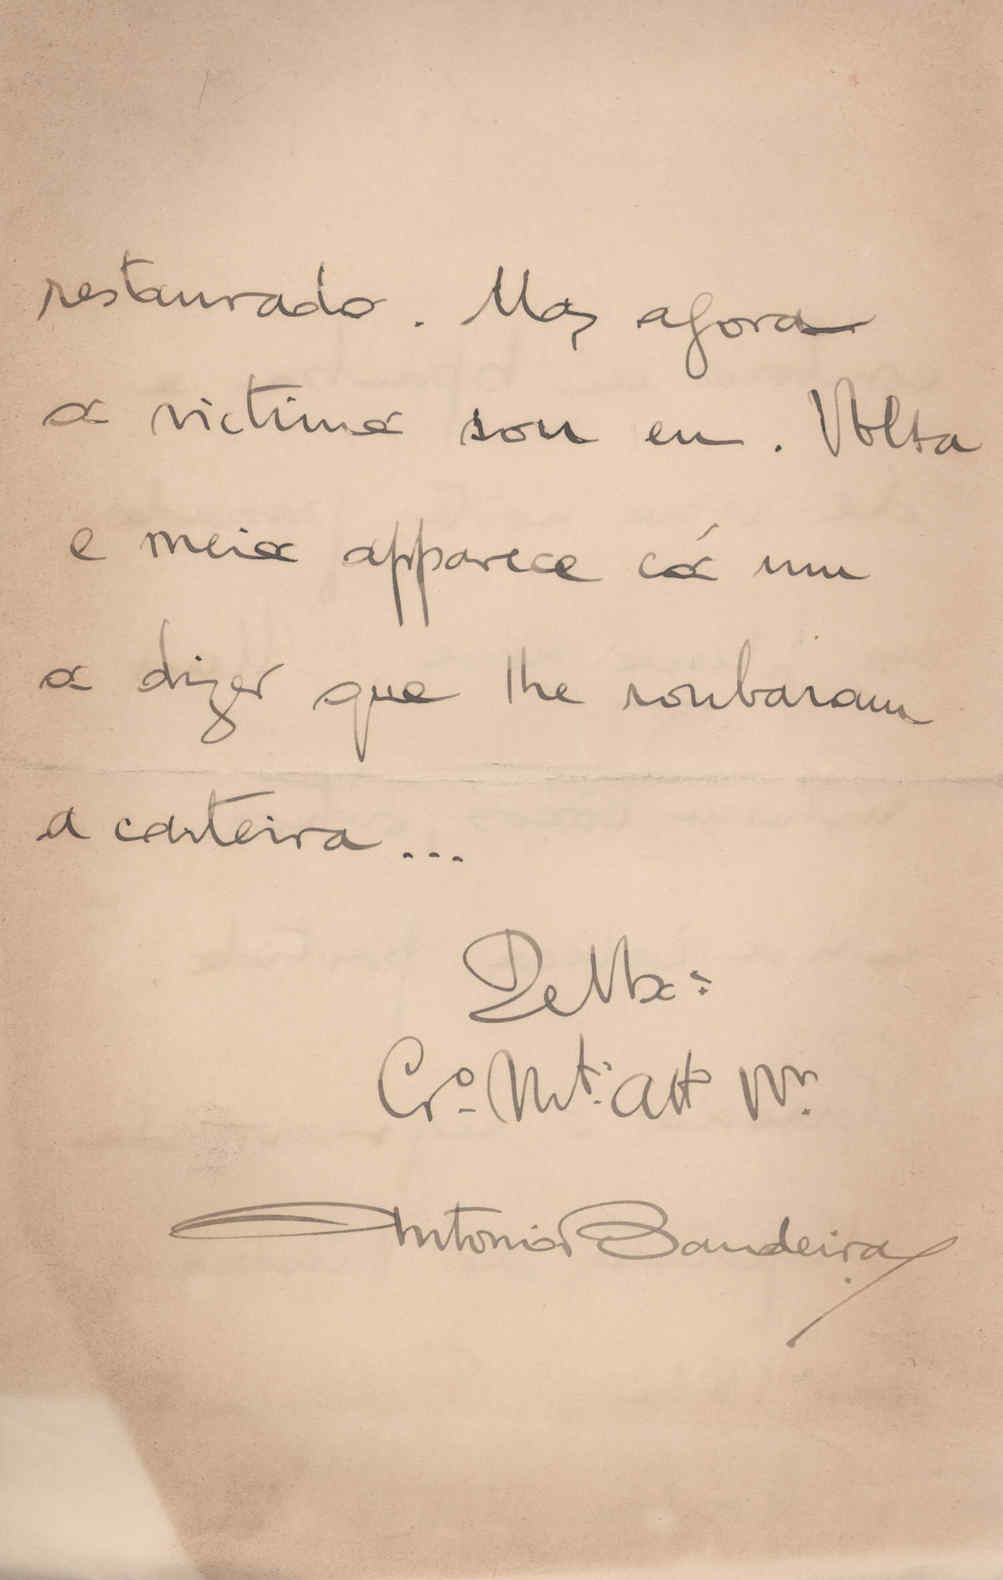 restaurado. Mas agora
a victima sou eu. Volta
e meia apparece cá um
a dizer que lhe roubaram
a carteira...
De V. Exª:
Crº. Mtº. attº Vnr.
Antonio Bandeira